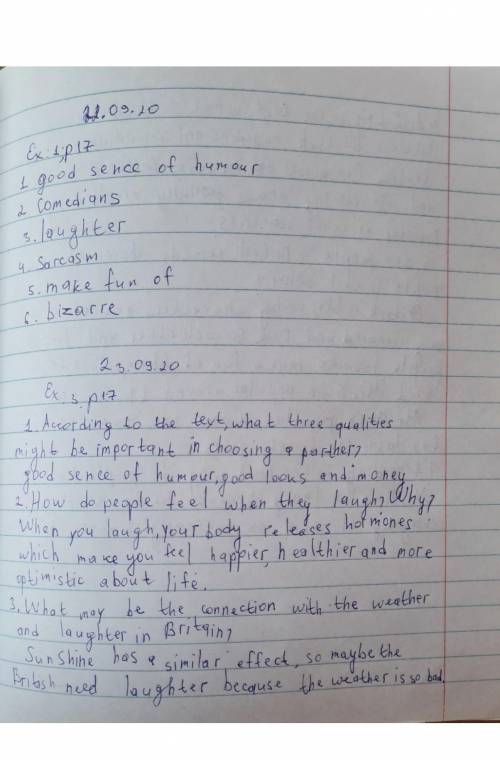 22.09.20
Ex: 1; p17
1. good sence of humour
2. Comedians
3. laughter
4. Sarcasm
5. make fun of
6. bizarre
23.09.20
Ex: 3. p17
1. According to the text, what three qualities
might be important in choosing a parther?
good sence of humour, good looks and money
2. How do people feel when they laugh? Why?
When you laugh, your body releases hormones
which make you feel happier, healthier and more
optimistic about life.
3. What may be the connection with the weather
and laughter in Britain?
Sunshine has a similar effect, so maybe the
Britosh need laughter because the weather is so bad.